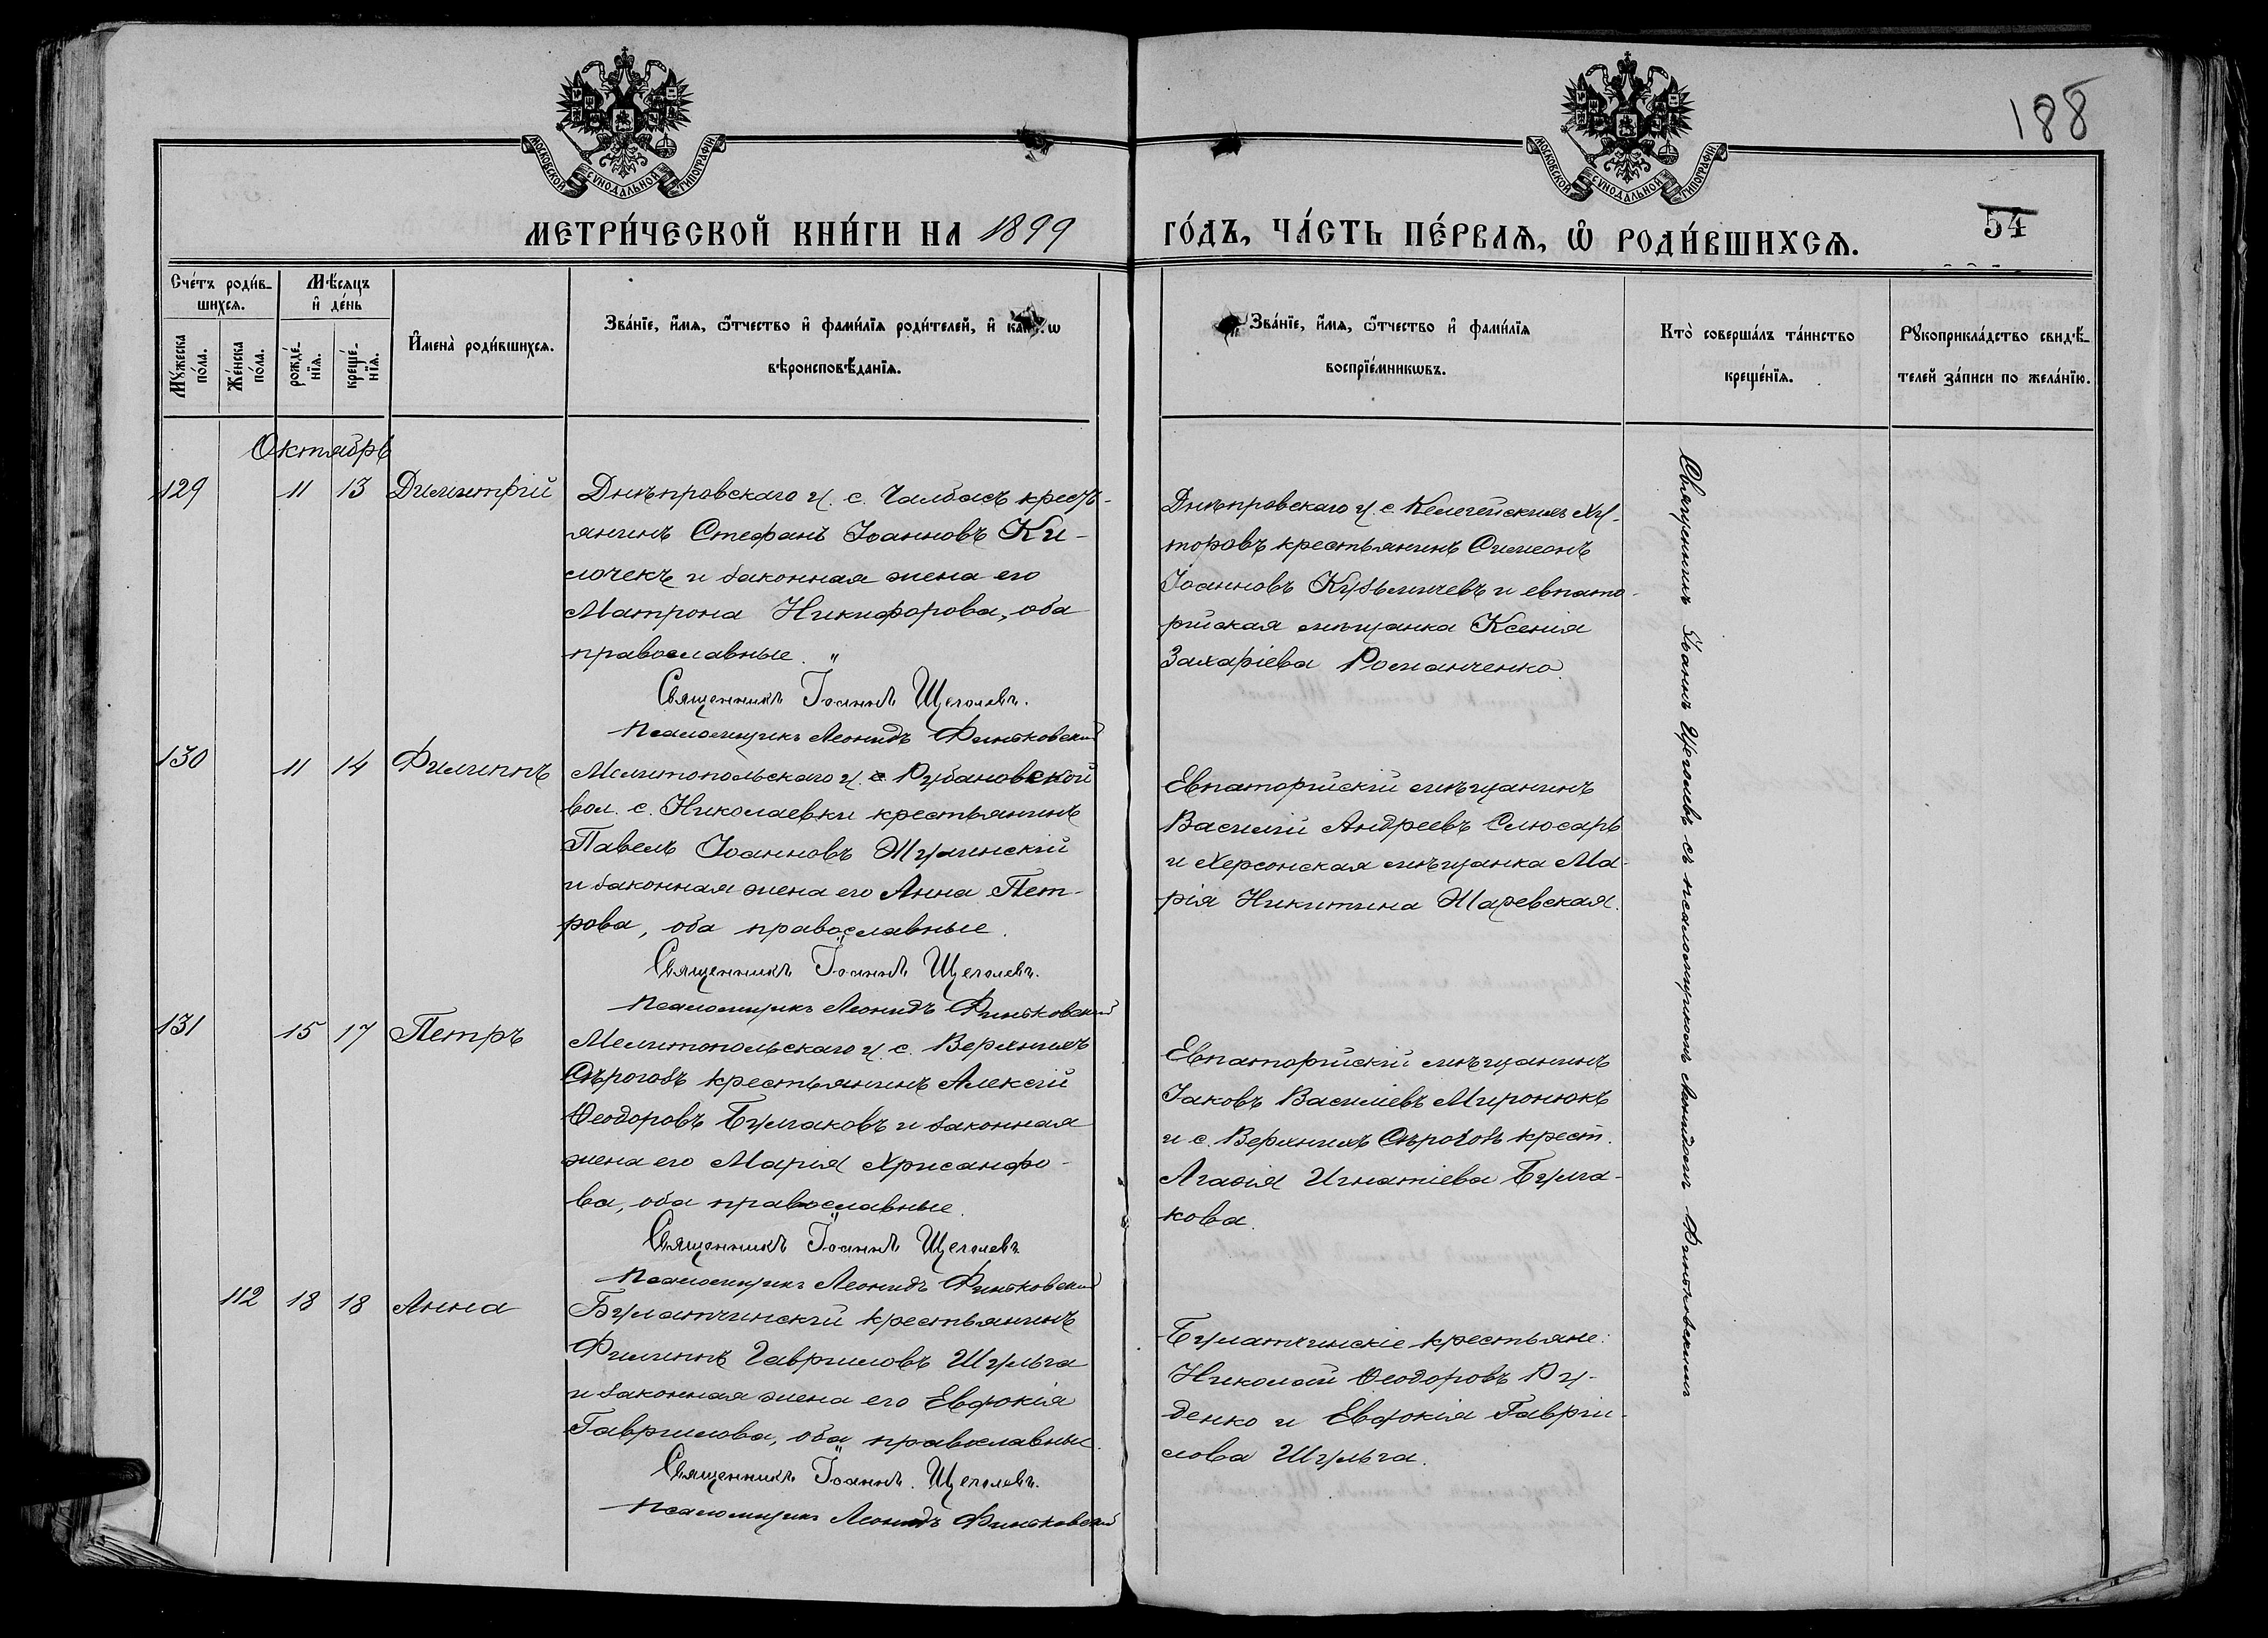 188
МОСКОВСКОЙ СѴНОДАЛЬНОЙ ТИПОГРАФІИ
МОСКОВСКОЙ СѴНОДАЛЬНОЙ ТИПОГРАФІИ
МЕТРИ́ЧЕСКОЙ КНИ́ГИ НА 1899
ГО́ДЪ, ЧА́СТЬ ПЕ́РВАѦ, Ѡ҆ РОДИ́ВШИХСѦ.
54
Сче́тъ роди́в-
шихсѧ.
Мꙋ́жеска
по́ла.
Же́нска
по́ла.
Мѣ́сѧцъ
и҆ де́нь
рожде́-
нїѧ.
креще́-
нїѧ.
И҆мена̀ роди́вшихсѧ.
Зва́нїе, и҆́мѧ, ѻ҆́тчество и҆ фами́лїѧ роди́телей, и҆
вѣроисповѣ́данїѧ.
Зва́нїе, и҆́мѧ, ѻ҆́тчество и҆ фами́лїѧ
воспрїе́мникѡвъ.
Кто̀ соверша́лъ та́инство
креще́нїѧ.
Рꙋкоприкла́дство свидѣ́-
телей за́писи по жела́нїю.
Октябрь
129 11 13 Димитрій
Днѣпровскаго у. с. Чалбасъ крест-
янинъ Стефанъ Іоанновъ Ки-
лочекъ и законная жена его
Матрона Никифорова, оба
православные.
Священникъ Іоаннъ Щеголевъ.
Псаломщикъ Леонидъ Финьковскій
Днѣпровскаго у. с. Келегейскихъ Ху-
торовъ крестьянинъ Симеонъ
Іоанновъ Кузьмичевъ и евпато-
рійская мѣщанка Ксенія
Захаріева Романченко.
130 11 14 Филиппъ
Мелитопольскаго у. Рубановской
вол. с. Николаевки крестьянинъ
Павелъ Іоанновъ
и законная жена его Анна Пет-
рова, оба православные.
Священникъ Іоаннъ Щеголевъ.
Псаломщикъ Леонидъ Финьковскій
Евпаторійскій мѣщанинъ
Василій Андреевъ Слюсарь
и Херсонская мѣщанка Ма-
рія Никитина
131 15 17 Петръ
Мелитопольскаго у. с. Верхнихъ
Сѣрогозъ крестьянинъ Алексій
Ѳеодоровъ Бумаковъ и законная
жена его Марія Хрисанфо-
ва, оба православные.
Священникъ Іоаннъ Щеголевъ
Псаломщикъ Леонидъ Финьковскій
Евпаторійскій мѣщанинъ
Іаковъ Василіевъ Миронюкъ
и с. Верхнихъ Сѣрогозъ крест.
Агаѳія Игнатіева Бума-
кова.
112 18 18 Анна
Булатчинскій крестьянинъ
Филиппъ Гавриловъ Шульга
и законная жена его Евдокія
Гаврилова, оба православные.
Священникъ Іоаннъ Щеголевъ.
Псаломщикъ Леонидъ Финьковскій
Булатчинскіе крестьяне:
Николай Ѳеодоровъ Ру-
денко и Евдокія Гаври-
лова Шульга.
Священникъ Іоаннъ Щеголевъ съ псаломщикомъ Леонидомъ Финьковскимъ